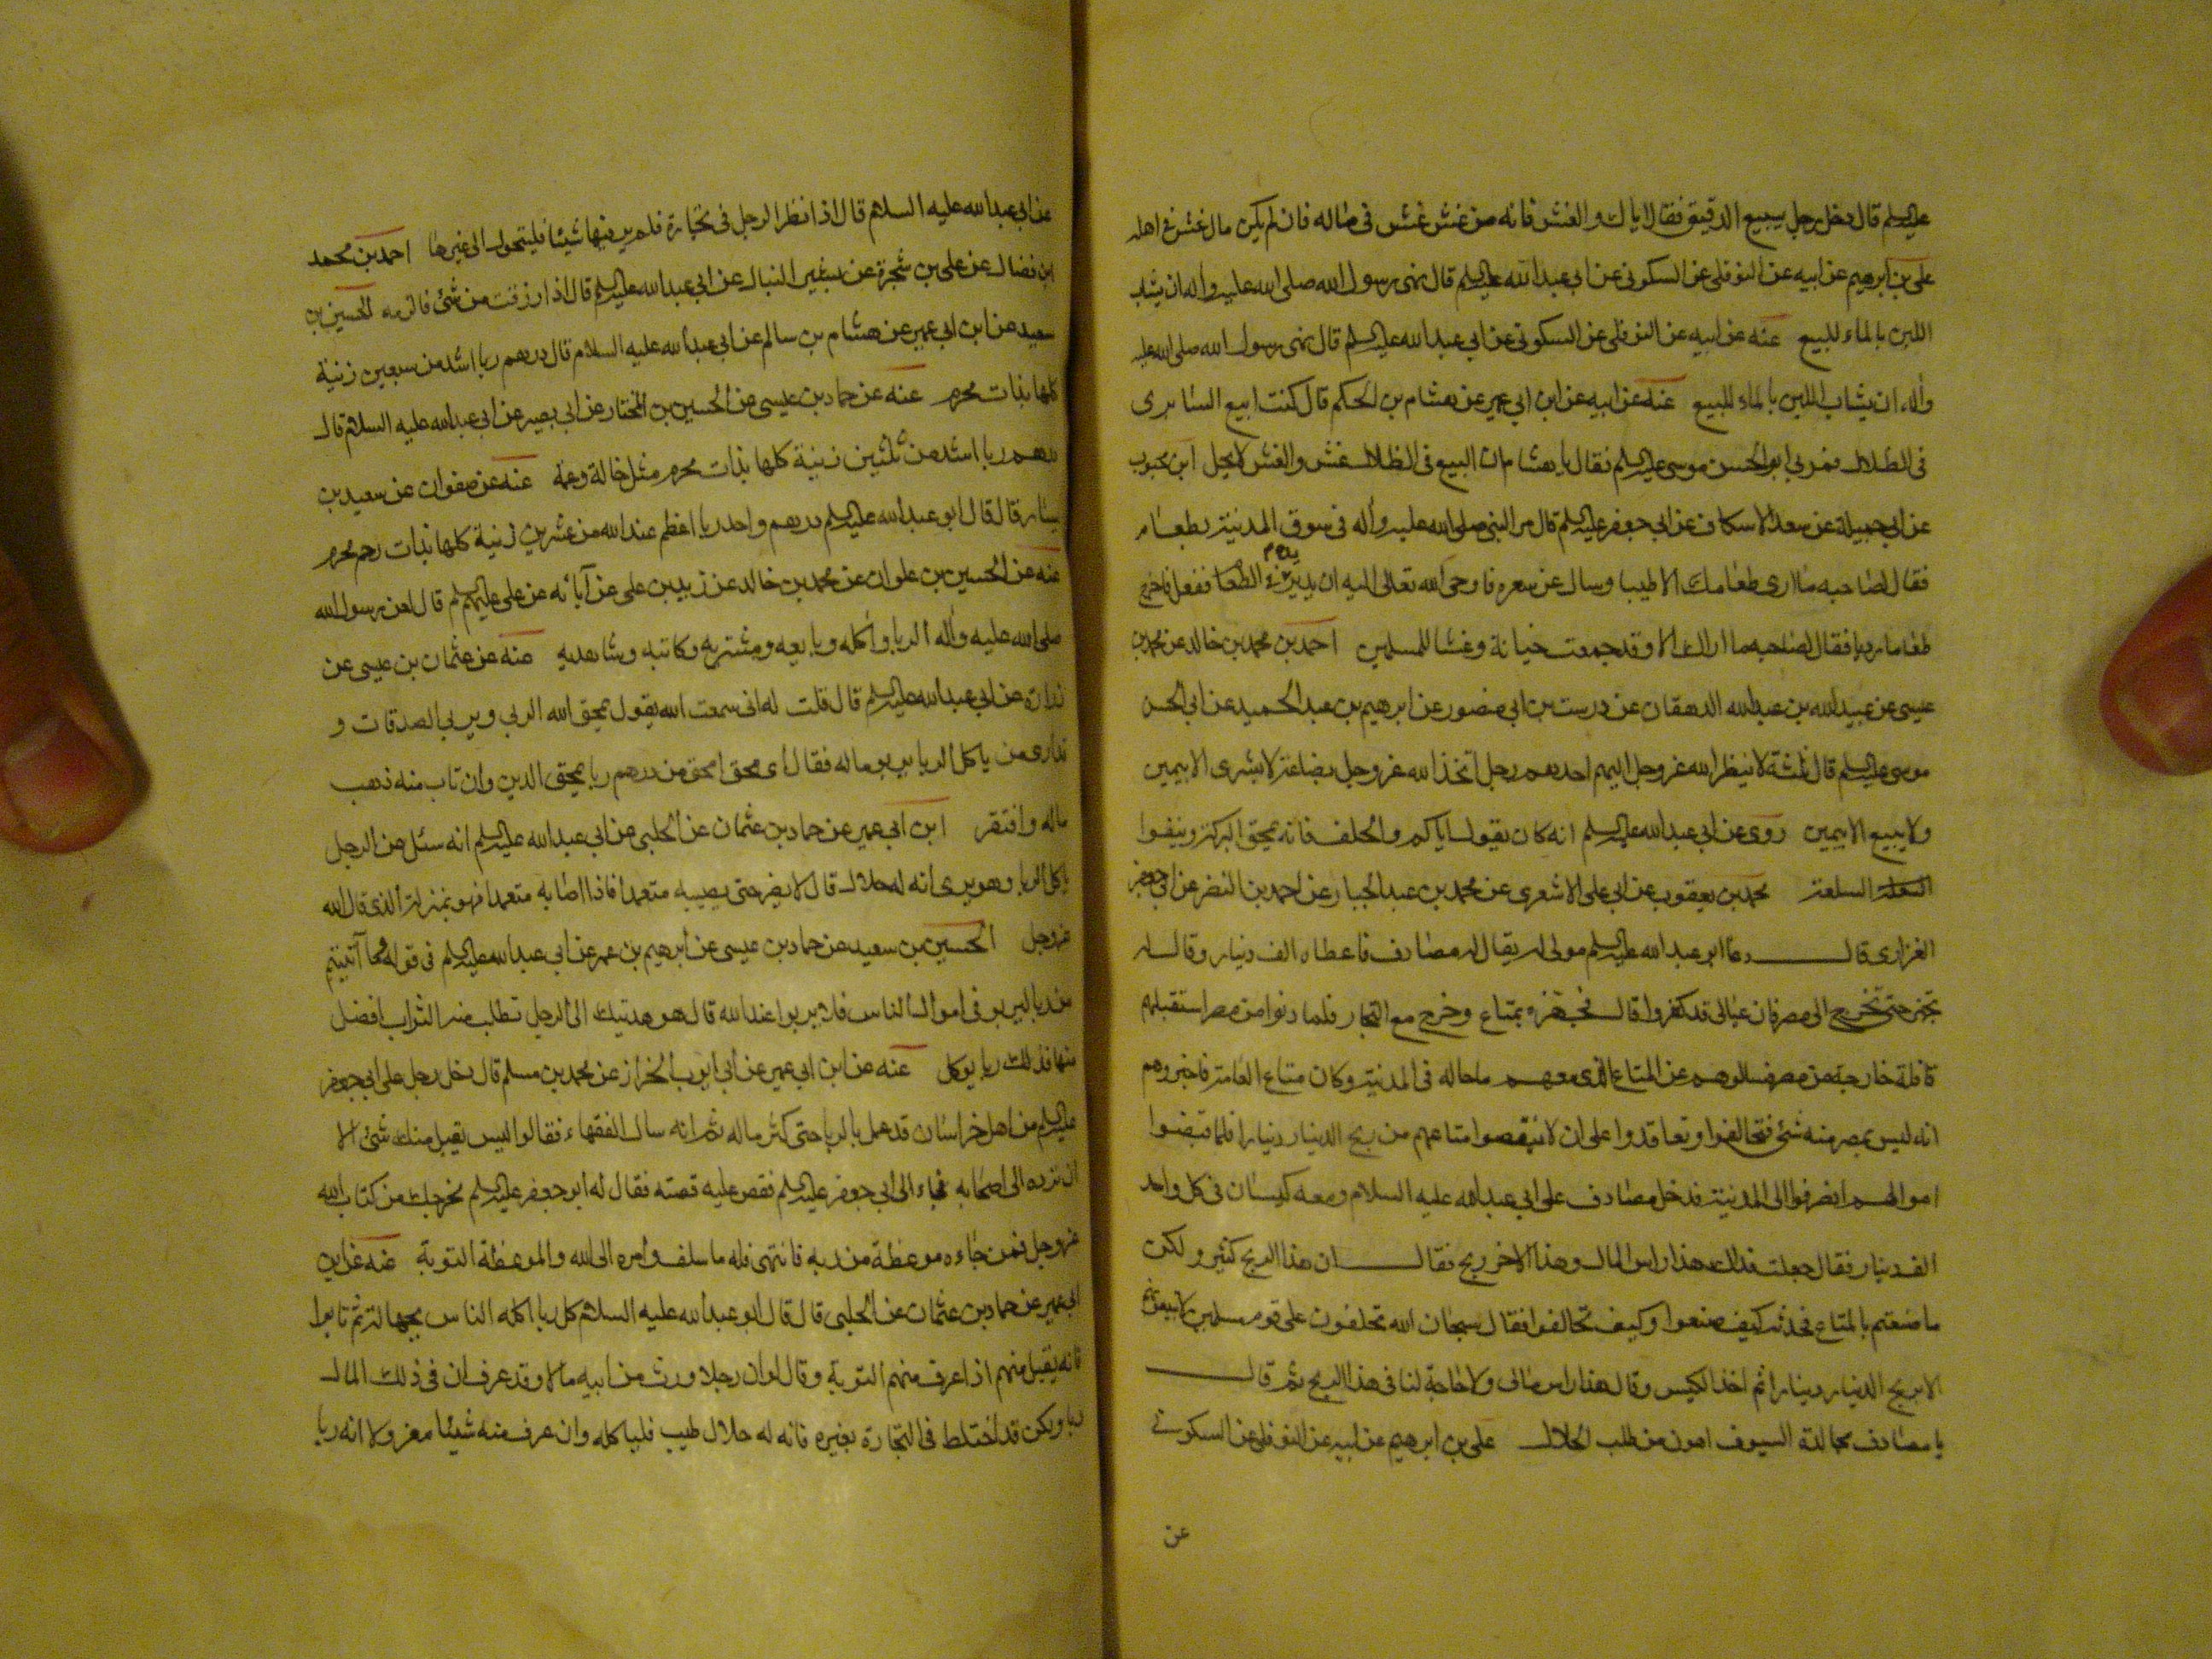 عليه السلم قال دخل رجل يبيع الدقيق فقال اياك والغش فانه من غش غش فى ماله فان لم يكن مال غش فى اهله
على بن ابرهيم عن ابيه عن النوفلى عن السكونى عن ابى عبد الله عليه السلم قال نهى رسول الله صلى الله عليه واله ان يشاب
اللبن بالماء للبيع عنه عن ابيه عن النوفلى عن السكونى عن ابى عبد الله عليه السلم قال نهى رسول الله صلى الله عليه
واله ان يشاب اللبن بالماء للبيع عنه عن ابيه عن ابن ابى عمير عن هشام بن الحكم قال كنت ابيع السابرى
فى الظلال فمر بى ابو الحسن موسى عليه السلم فقال يا هشام ان البيع فى الظلال غش والغش لا يحل ابن محبوب
عن ابى جميلة عن سعد الاسكاف عن ابى جعفر عليه السلم قال مر النبى صلى الله عليه واله فى سوق المدينة بطعام
فقال لصاحبه ما ارى طعامك الا طيبا وسال عن سعره فاوحى الله تعالى اليه ان يدير يده فى الطعام ففعل فاخرج
طعاما رديا فقال لصاحبه ما اراك الا وقد جمعت خيانة وغشا للمسلمين احمد بن محمد بن خالد عن محمد بن
عيسى عن عبيد الله بن عبد الله الدهقان عن درست بن ابى منصور عن ابرهيم بن عبد الحميد عن ابى الحسن
موسى عليه السلم قال ثلثة لا ينظر الله عز وجل اليهم احدهم رجل اتخذ الله عز وجل بضاعة لا يشترى الا بيمين
ولا يبيع الا بيمين روى عن ابى عبد الله عليه السلم انه كان يقول اياكم والحلف فانه يمحق البركة وينفوا
السلعة محمد بن يعقوب عن ابى على الاشعرى عن محمد بن عبد الجبار عن احمد بن النضر عن ابى جعفر
الفزارى قال دعا ابو عبد الله عليه السلم مولى له يقال له مصادف فاعطاه الف دينار وقال له
تجهز حتى تخرج الى مصر فان عيالى قد كثروا قال فجهزه بمتاع وخرج مع التجار فلما دنوا من مصر استقبلهم
قافلة خارجة من مصر فسالوهم عن المتاع الذى معهم ما حاله فى المدينة وكان متاع العامة فاخبروهم
انه ليس بمصر منه شئ فتحالفوا وتعاقدوا على ان لا ينقصوا متاعهم من ربح الدينار دينارا فلما قبضوا
اموالهم انصرفوا الى المدينة فدخل مصادف على ابى عبد الله عليه السلام ومعه كيسان فى كل واحد
الف دينار فقال جعلت فداك هذا راس المال وهذا الاخر ربح فقال ان هذا الربح كثير ولكن
ما صنعتم بالمتاع فحدثه كيف صنعوا وكيف تحالفوا فقال سبحان الله تحلفون على قوم مسلمين لا تبيعونهم
الا بربح الدينار دينارا ثم اخذ الكيس وقال هذا راس مالى ولا حاجة لنا فى هذا الربح ثم قال
يا مصادف مجالدة السيوف اهون من طلب الحلال على بن ابرهيم عن ابيه عن النوفلى عن السكونى
عن
عن ابى عبد الله عليه السلام قال اذا نظر الرجل فى تجارة فلم ير فيها شيئا فليتحول الى غيرها احمد بن محمد
ابن فضال عن على بن شجرة عن بشير النبال عن ابى عبد الله عليه السلم قال اذا رزقت من شئ فالزمه الحسين بن
سعيد عن ابن ابى عمير عن هشام بن سالم عن ابى عبد الله عليه السلام قال درهم ربا اشد من سبعين زنية
كلها بذات محرم عنه عن حماد بن عيسى عن الحسين بن المختار عن ابى بصير عن ابى عبد الله عليه السلام قال
درهم ربا اشد من ثلثين زنية كلها بذات محرم مثل خالة وعمة عنه عن صفوان عن سعيد بن
يسار قال قال ابو عبد الله عليه السلم درهم واحد ربا اعظم عند الله من عشرين زنية كلها بذات رحم محرم
عنه عن الحسين بن علوان عن محمد بن خالد عن زيد بن على عن آبائه عن على عليهم السلم قال لعن رسول الله
صلى الله عليه واله الربا واكله وبايعه ومشتريه وكاتبه وشاهديه عنه عن عثمان بن عيسى عن
زرارة عن ابى عبد الله عليه السلم قال قلت له انى سمعت الله يقول يمحق الله الربى ويربى الصدقات و
قد ارى من ياكل الربا يربو ماله فقال اى محق امحق من درهم ربا يمحق الدين وان تاب منه ذهب
ماله وافتقر ابن ابى عمير عن حماد بن عثمان عن الحلبى عن ابى عبد الله عليه السلم انه سئل عن الرجل
ياكل الربا وهو يرى انه له حلال قال لا يضره حتى يصيبه متعمدا فاذا اصابه متعمدا فهو بمنزلة الذى قال الله
عز وجل الحسين بن سعيد عن حماد بن عيسى عن ابرهيم بن عمر عن ابى عبد الله عليه السلم فى قوله وما آتيتم
من ربا ليربو فى اموال الناس فلا يربوا عند الله قال هو هديتك الى الرجل تطلب منه الثواب افضل
منها فذلك ربا يوكل عنه عن ابن ابى عمير عن ابى ايوب الخراز عن محمد بن مسلم قال دخل رجل على ابى جعفر
عليه السلم من اهل خراسان قد عمل بالربا حتى كثر ماله ثم انه سال الفقهاء فقالوا ليس يقبل منك شئ الا
ان ترده الى اصحابه فجاء الى ابى جعفر عليه السلم فقص عليه قصته فقال له ابو جعفر عليه السلم مخرجك من كتاب الله
عز وجل فمن جاءه موعظة من ربه فانتهى فله ما سلف وامره الى الله والموعظة التوبة عنه عن ابن
ابى عمير عن حماد بن عثمان عن الحلبى قال قال ابو عبد الله عليه السلام كل ربا اكله الناس بجهالة ثم تابوا
فانه يقبل منهم اذا عرف منهم التوبة وقال لو ان رجلا ورث من ابيه مالا وقد عرف ان فى ذلك المال
ربا ولكن قد اختلط فى التجارة بغيره فانه له حلال طيب فلياكله وان عرف منه شيئا معزولا انه ربا